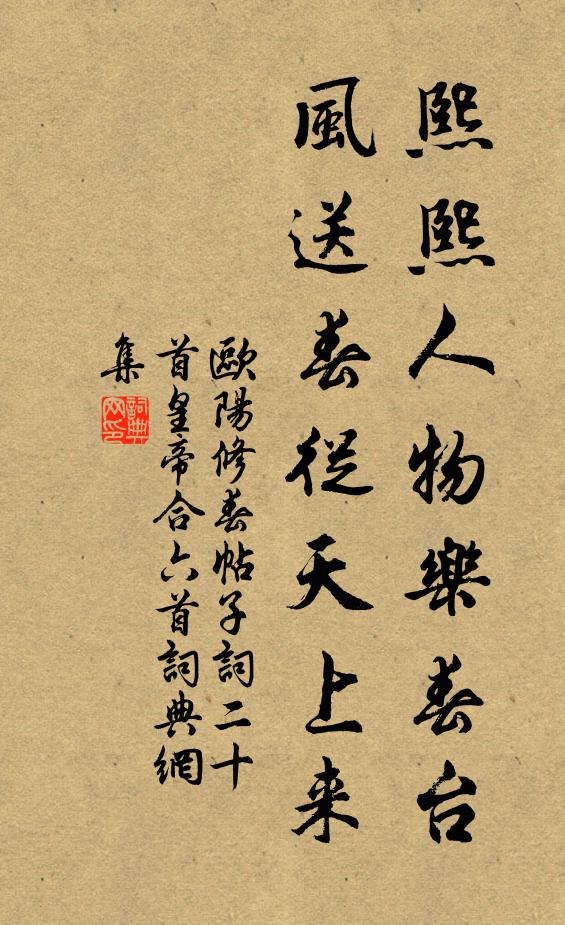 熙熙人物樂春台
風送春從天上来
歐陽修春帖子詞二十
首皇帝合六首詞典網
集
詞典
网印